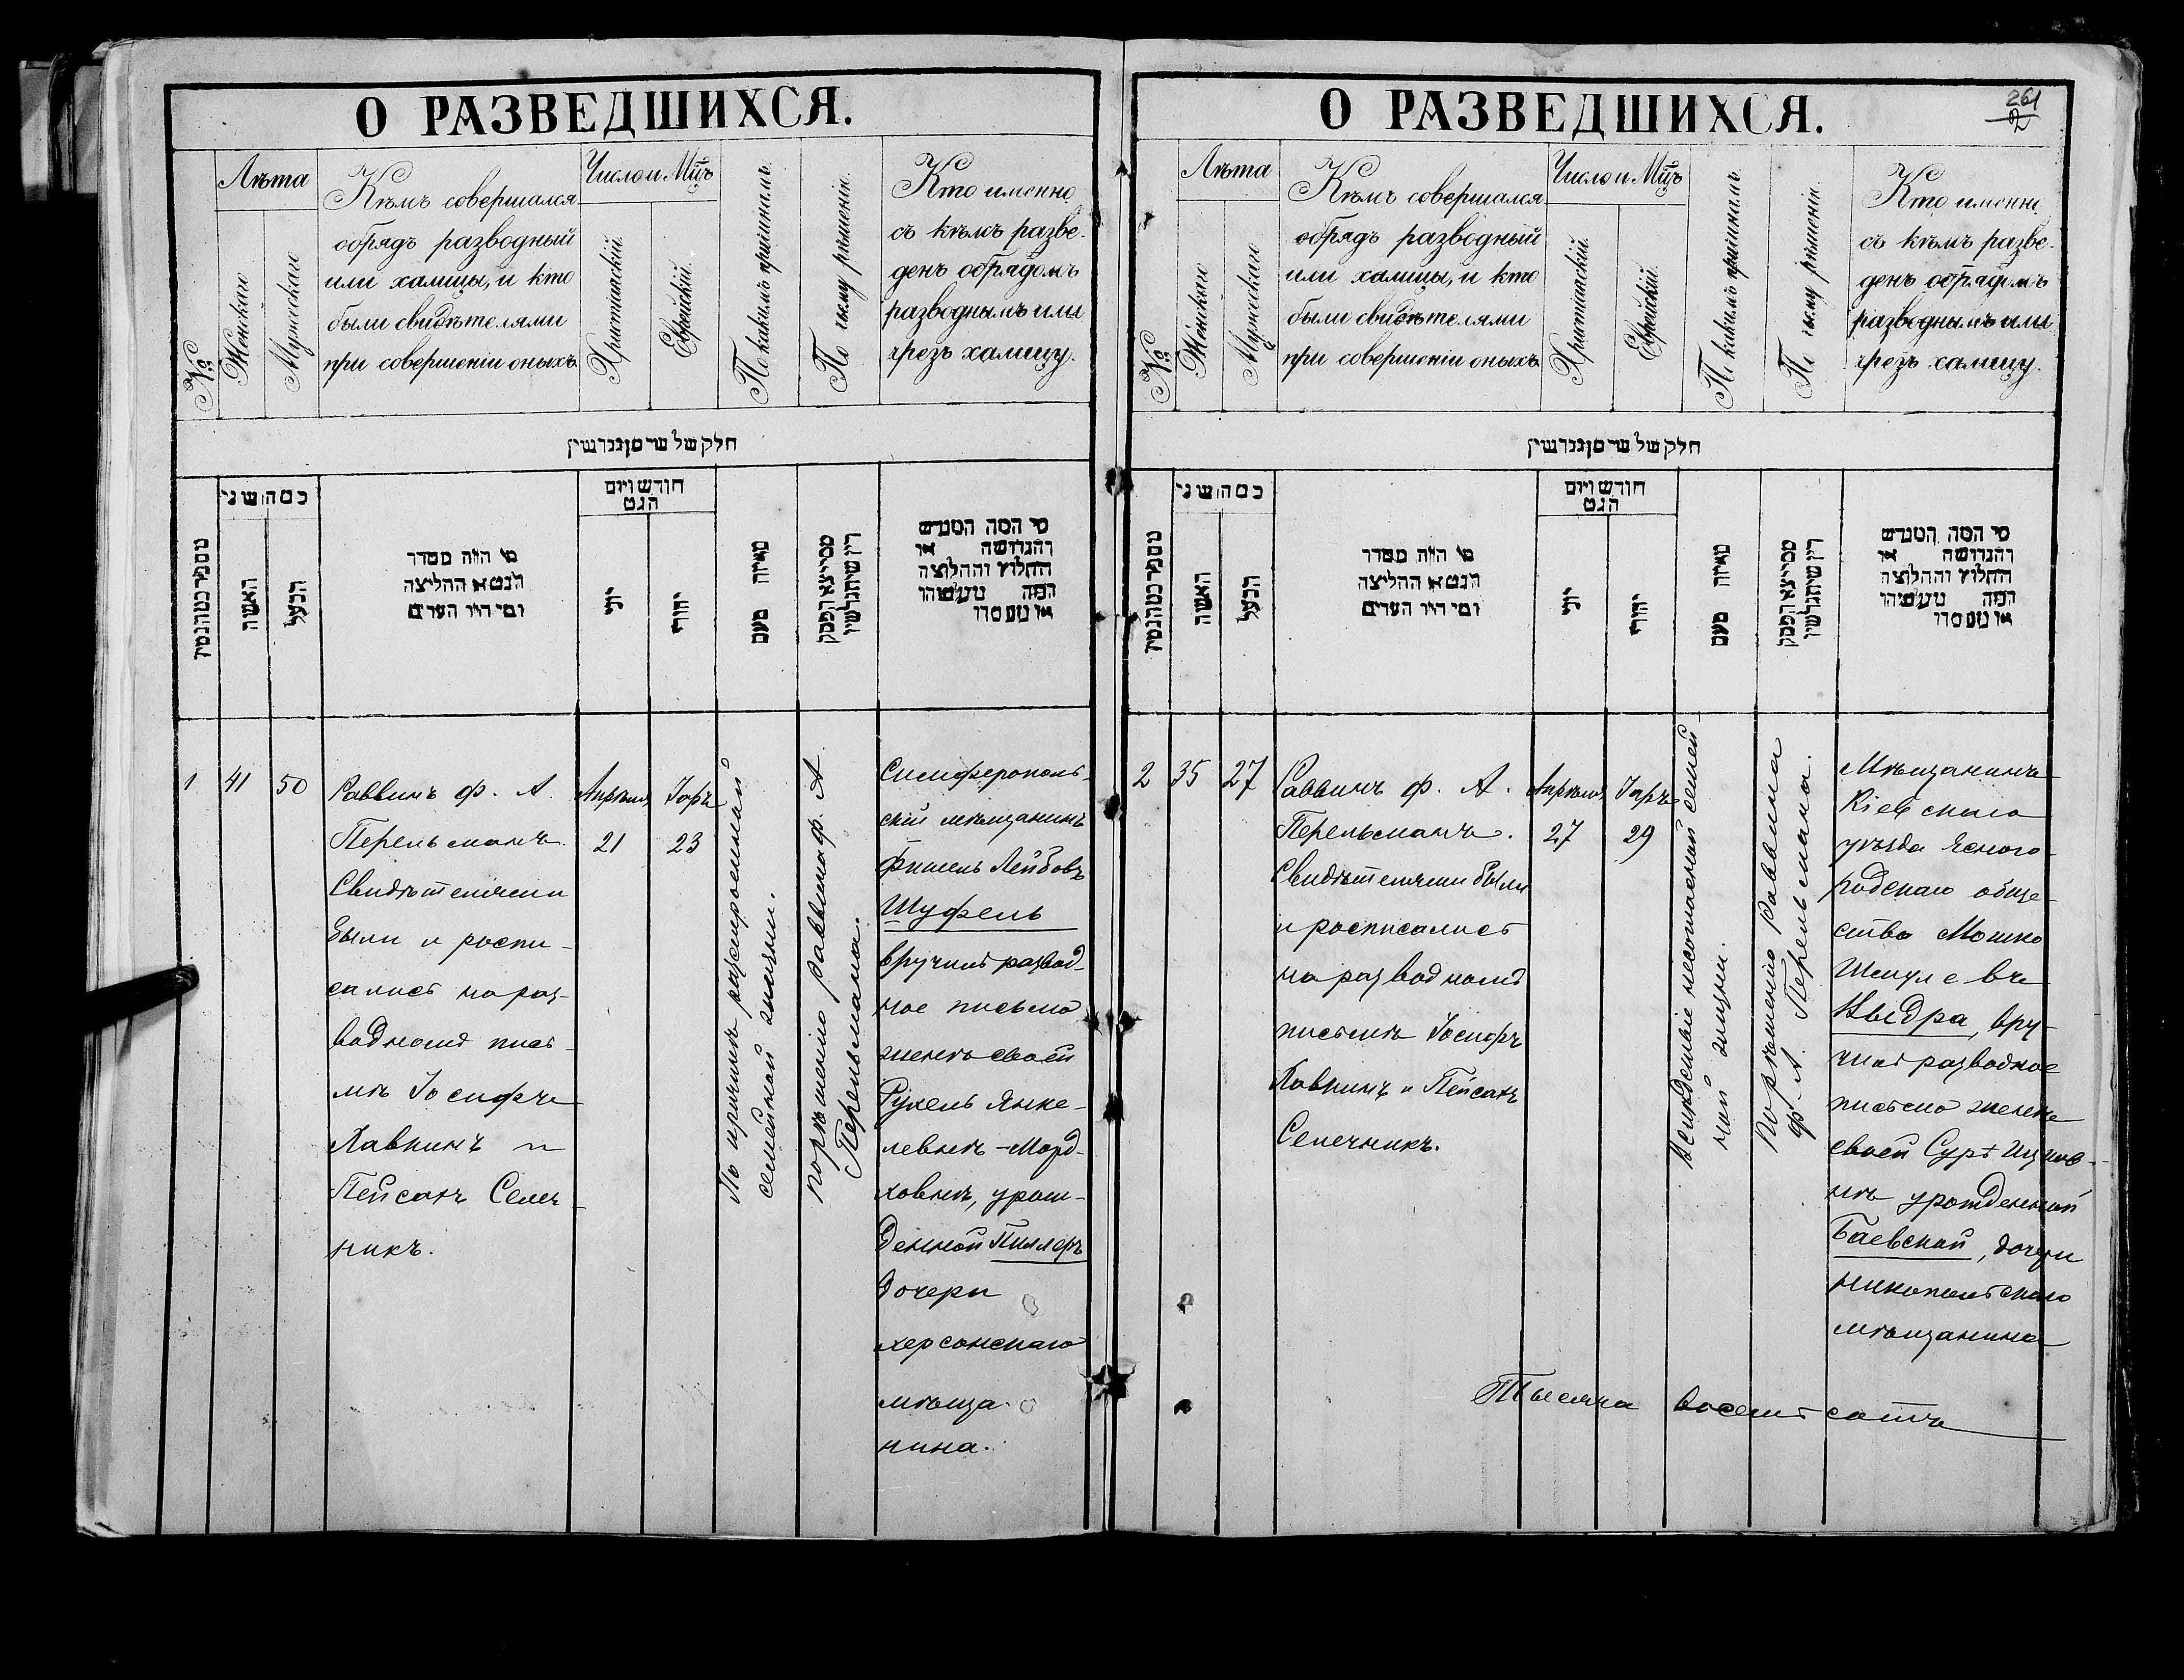 О РАЗВЕДШИХСЯ.
№
Лѣта
Женскаго
Мужескаго
Кѣмъ совершался
обрядъ разводный
или халицы, и кто
были свидѣтелями
при совершеніи оныхъ
Число и Мцъ
Христіаскій
Еврейскій
По какимъ причинамъ
По чьему рѣшенію
Кто именно
съ кѣмъ разве-
денъ обрядомъ
разводнымъ или
чрезъ халицу.
חלק של שרסן גגרשין
כמה שני
האשה
הבעל
מי היה מסדר
הגט או החליצה
ומי היו העדים
חודש ויום
הגט
יוני
יהודי
מאיזה טעם
מי המה המגרש
והגרושה או
החלוץ והחלוצה
1
41
50
Раввинъ ф. А.
Перельманъ.
Свидѣтелями
были и роспи-
сались на раз-
водномъ пись-
мѣ Іосифъ
Лавнинъ и
Пейсахъ Селеч-
никъ.
Апрѣля
21
Іаръ
23
По причинѣ разстроенной
семейной жизни.
По рѣшенію раввина ф. А
Перельмана.
Симферополь-
скій мѣщанинъ
Фишель Лейбовъ
Шуфель
вручилъ развод-
ное письмо
женѣ своей
Рухель Янке-
левнѣ-Морд-
ховнѣ, урож-
денной Пиллеръ
дочери
херсонскаго
мѣща-
нина.
О РАЗВЕДШИХСЯ.
261
2
№
Лѣта
Женскаго
Мужескаго
Кѣмъ совершался
обрядъ разводный
или халицы, и кто
были свидѣтелями
при совершеніи оныхъ
Число и Мцъ
Христіаскій
Еврейскій
По какимъ причинамъ
По чьему рѣшенію
Кто именно
съ кѣмъ разве-
денъ обрядомъ
разводнымъ или
чрезъ халицу.
חלק של שרסן גגרשין
כמה שני
האשה
הבעל
מי היה מסדר
הגט או החליצה
ומי היו העדים
חודש ויום
הגט
יוני
יהודי
מאיזה טעם
מי המה המגרש
והגרושה או
החלוץ והחלוצה
2
35
27
Раввинъ ф. А.
Перельманъ.
Свидѣтелями были
и росписались
на разводномъ
письмѣ Іосифъ
Лавнинъ и Пейсахъ
Селечникъ.
Апрѣля
27
Іаръ
29
Вслѣдствіе несогласной семей-
ной жизни.
По рѣшенію раввина
ф. А. Перельмана.
Мѣщанинъ
Кіевскаго
уѣзда Ясного-
родскаго обще-
ства Мошко
Шмулевъ
Выдра, вру-
чилъ разводное
письмо женѣ
своей Сурѣ Ицков-
нѣ урожденной
Баевской, дочери
никопольскаго
мѣщанина
Тысяча восемьсотъ